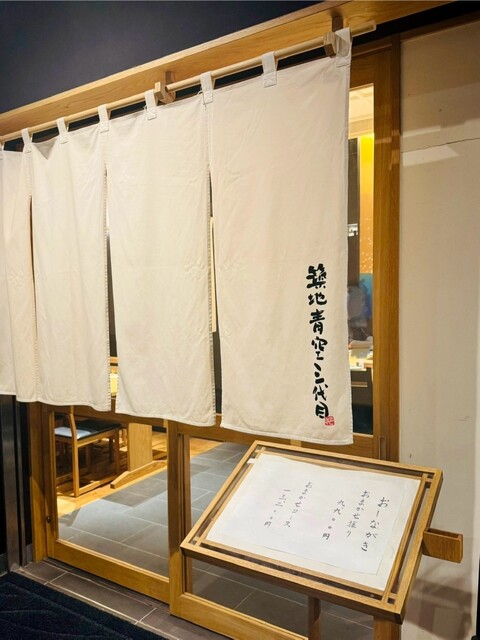 築地青空三代目
おしながき
おまかせ握り
九九〇〇円
おまかせコース